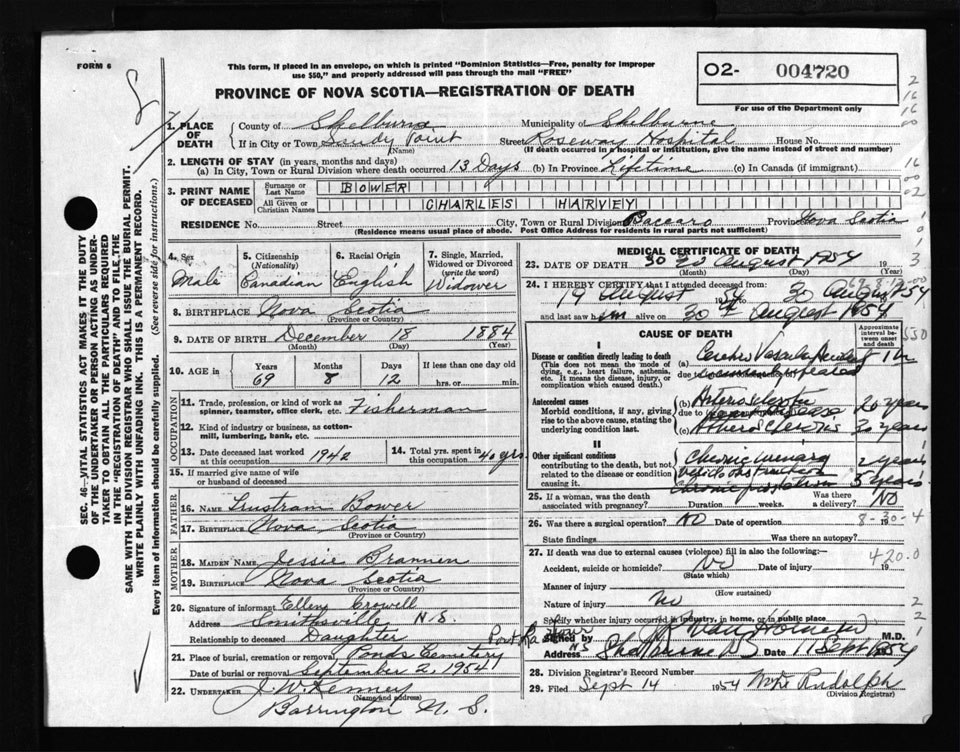 FORM 6
This form, if placed in an envelope, on which is printed "Dominion Statistics—Free, penalty for improper
use $50," and properly addressed will pass through the mail "FREE"
O2- 004720
PROVINCE OF NOVA SCOTIA—REGISTRATION OF DEATH
For use of the Department only
1. PLACE OF DEATH
County of Shelburne Municipality of Shelburne
If in City or Town Sandy Point Street Roseway Hospital House No.
(Name) (If death occurred in a hospital or institution, give the name instead of street and number)
2. LENGTH OF STAY (in years, months and days)
(a) In City, Town or Rural Division where death occurred 13 Days (b) In Province Lifetime (c) In Canada (if immigrant)
3. PRINT NAME OF DECEASED
Surname or Last Name BOWER
All Given or Christian Names CHARLES HARVEY
RESIDENCE No. Street City, Town or Rural Division Baccaro Province Nova Scotia
(Residence means usual place of abode. Post Office Address for residents in rural parts not sufficient)
4. Sex
Male
5. CITIZENSHIP
(Nationality)
Canadian
6. Racial Origin
English
7. Single, Married, Widowed or Divorced
(write the word)
Widower
8. BIRTHPLACE Nova Scotia
(Province or Country)
9. DATE OF BIRTH December 18 1884
(Month) (Day) (Year)
10. AGE in
Years Months Days If less than one day old
69 8 12 hrs. or min.
OCCUPATION
11. Trade, profession, or kind of work as
spinner, teamster, office clerk, etc. Fisherman
12. Kind of industry or business, as cotton-
mill, lumbering, bank, etc.
13. Date deceased last worked
at this occupation 1942
14. Total yrs. spent in
this occupation 40 yrs
15. If married give name of wife
or husband of deceased
FATHER
16. NAME Trustram Bower
17. BIRTHPLACE Nova Scotia
(Province or Country)
MOTHER
18. MAIDEN NAME Jessie Brannen
19. BIRTHPLACE Nova Scotia
(Province or Country)
20. Signature of informant Ellen Crowell
Address Smithsville N.S.
Relationship to deceased Daughter
21. Place of burial, cremation or removal Ponds Cemetery
Date of burial or removal September 2, 1954
22. UNDERTAKER J. W. Kenney
(Name and address)
Barrington N. S.
MEDICAL CERTIFICATE OF DEATH
23. DATE OF DEATH 30 August 1954 19
(Month) (Day)
24. I HEREBY CERTIFY that I attended deceased from:
19 August to 30 August 1954
and last saw him alive on 30th August 1954
CAUSE OF DEATH
Approximate interval between onset and death
I
Disease or condition directly leading to death
(This does not mean the mode of dying, e.g., heart failure, asthenia, etc. It means the disease, injury, or complication which caused death.)
(a) Cerebro Vascular
due to
Antecedent causes
Morbid conditions, if any, giving rise to the above cause, stating the underlying condition last.
(b) 20 years
due to
(c) 20 years
II
Other significant conditions
contributing to the death, but not related to the disease or condition causing it.
Chronic 2 years
Chronic 5 years
25. If a woman, was the death
associated with pregnancy? Duration weeks.
Was there a delivery? NO
26. Was there a surgical operation? NO Date of operation 19
8-30-4
State findings Was there an autopsy?
27. If death was due to external causes (violence) fill in also the following:—
420.0
Accident, suicide or homicide? No Date of injury 19
(State which)
Manner of injury
(How sustained)
Nature of injury no
Specify whether injury occurred in industry, in home, or in public place
Signed by M.D.
Address Shelburne NS Date 11 Sept 1954
28. Division Registrar's Record Number
29. Filed Sept 14 1954 Rudolph
(Division Registrar)
SEC. 46—VITAL STATISTICS ACT MAKES IT THE DUTY
OF THE UNDERTAKER OR PERSON ACTING AS UNDER-
TAKER TO OBTAIN ALL THE PARTICULARS REQUIRED
IN THE "REGISTRATION OF DEATH" AND TO FILE THE
SAME WITH THE DIVISION REGISTRAR WHO SHALL ISSUE THE BURIAL PERMIT.
WRITE PLAINLY WITH UNFADING INK. THIS IS A PERMANENT RECORD.
Every item of information should be carefully supplied. (See reverse side for instructions.)